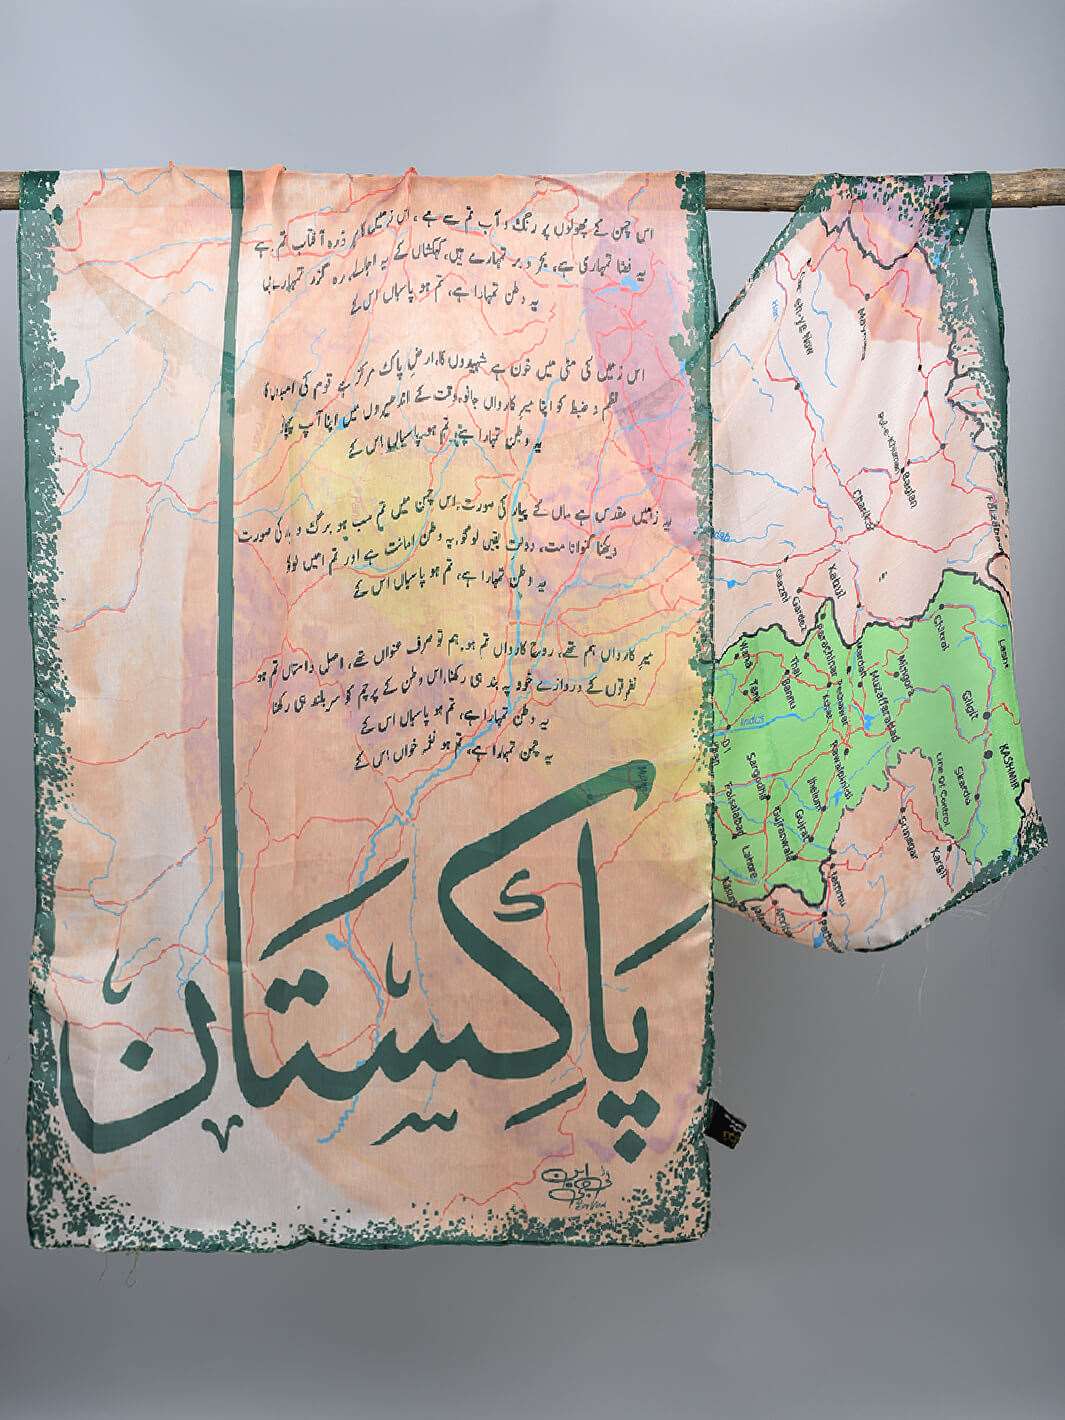 اس چمن کے پھولوں پر رنگ و آب تم سے ہے، اس زمیں کا ہر ذرہ آفتاب تم سے ہے
یہ فضا تمہاری ہے، بحر و بر تمہارے ہیں، کہکشاں کے یہ اجالے، رہ گزر تمہارے ہیں
یہ وطن تمہارا ہے، تم ہو پاسباں اس کے
اس زمیں کی مٹی میں خون ہے شہیدوں کا، ارضِ پاک مرکز ہے قوم کی امیدوں کا
نظم و ضبط کو اپنا میرِ کارواں جانو، وقت کے اندھیروں میں اپنا آپ پہچانو
یہ وطن تمہارا ہے، تم ہو پاسباں اس کے
یہ زمیں مقدس ہے ماں کے پیار کی صورت، اس چمن میں تم سب ہو برگ و بار کی صورت
دیکھنا گنوانا مت، دولتِ یقیں لوگو، یہ وطن امانت ہے اور تم امیں لوگو
یہ وطن تمہارا ہے، تم ہو پاسباں اس کے
میرِ کارواں ہم تھے، روحِ کارواں تم ہو، ہم تو صرف عنواں تھے، اصل داستاں تم ہو
نفرتوں کے دروازے خود پہ بند ہی رکھنا، اس وطن کے پرچم کو سربلند ہی رکھنا
یہ وطن تمہارا ہے، تم ہو پاسباں اس کے
یہ چمن تمہارا ہے، تم ہو نغمہ خواں اس کے
پاکستان
Pol-e-Khomari
Baglan
Charikar
Kabul
Ghazni
Gardez
Chitral
Parachinar
Mardan
Peshawar
Mingora
Muzaffarabad
Thal
Bannu
Tank
Kohat
Wana
Indus
Gilgit
KASHMIR
Skardu
Line Of Control
Rawalpindi
Jhelum
Sargodha
Gujrat
Gujranwala
Faisalabad
Lahore
Kasur
Srinagar
Kargil
Jammu